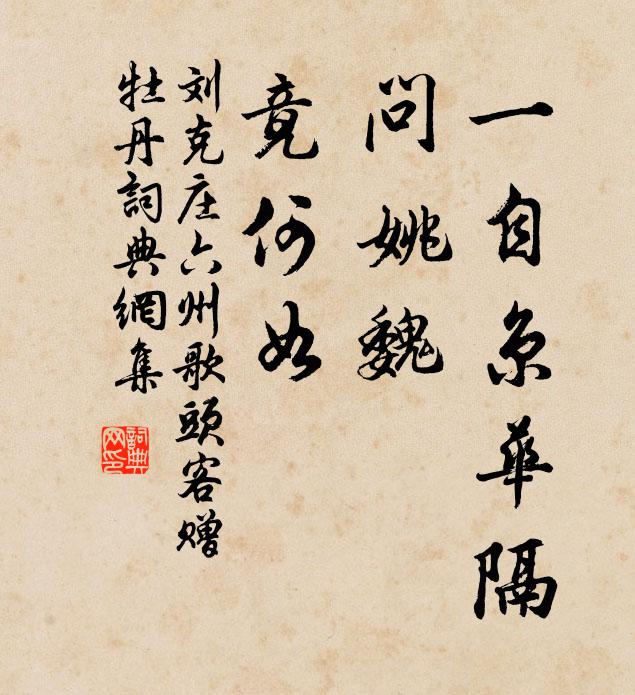 一自京華隔
問姚魏
竟何如
刘克庄六州歌頭客赠
牡丹詞典網集
詞典网印